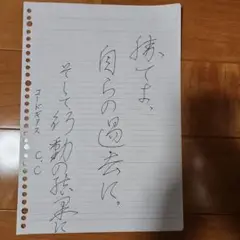 勝てよ、
自らの過去に。
そして行動の結果に
コードギアス
C.C